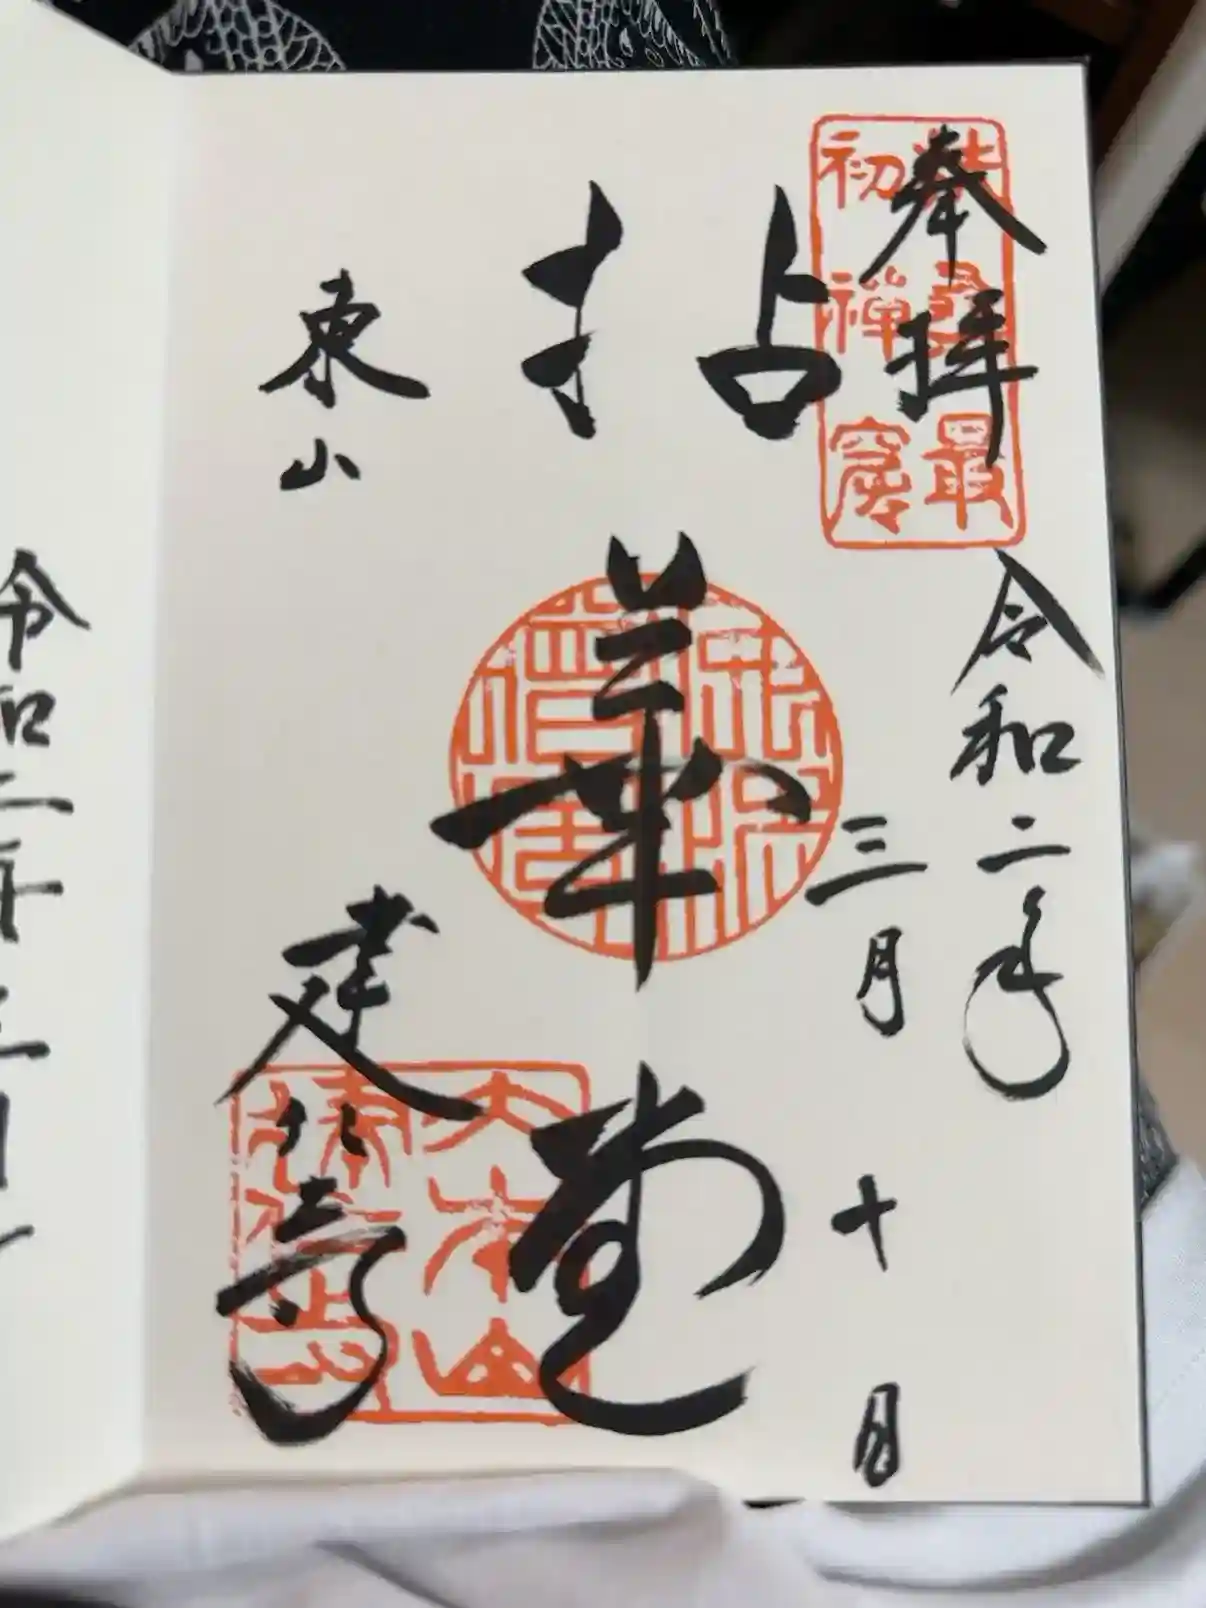 奉拝
扶桑最
初禅窟
令和二年
三月十日
拈華堂
東山
建仁寺
大本山
建仁寺
令和二年三月